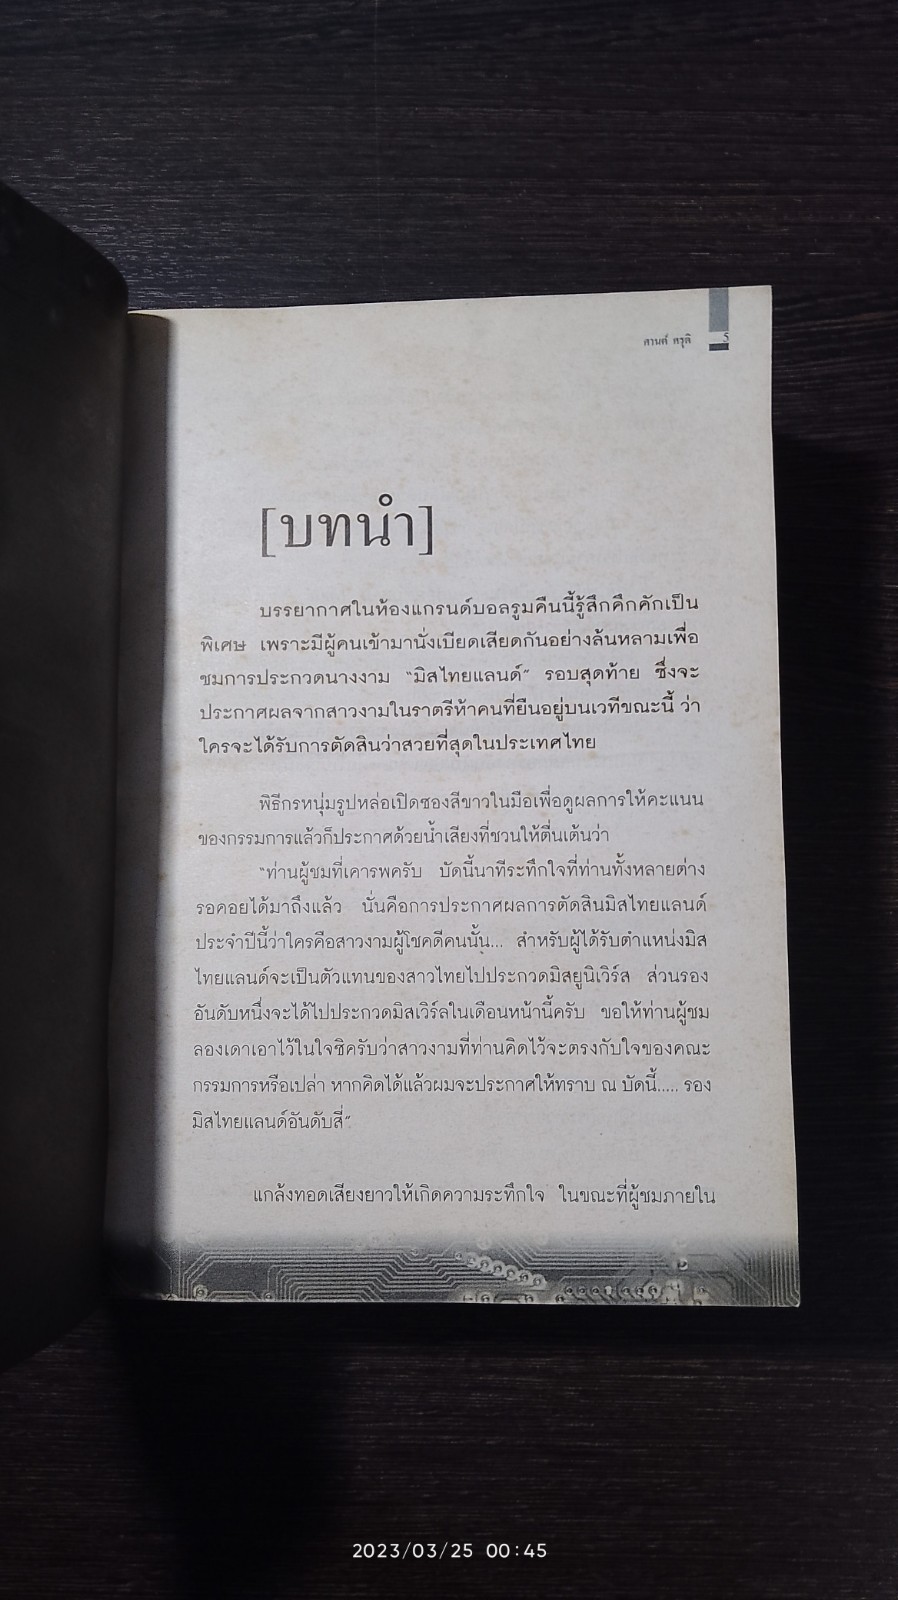 ศานต์ ศรุติ 5
[บทนำ]
บรรยากาศในห้องแกรนด์บอลรูมคืนนี้รู้สึกคึกคักเป็น
พิเศษ เพราะมีผู้คนเข้ามานั่งเบียดเสียดกันอย่างล้นหลามเพื่อ
ชมการประกวดนางงาม “มิสไทยแลนด์” รอบสุดท้าย ซึ่งจะ
ประกาศผลจากสาวงามในราตรีห้าคนที่ยืนอยู่บนเวทีขณะนี้ ว่า
ใครจะได้รับการตัดสินว่าสวยที่สุดในประเทศไทย
พิธีกรหนุ่มรูปหล่อเปิดซองสีขาวในมือเพื่อดูผลการให้คะแนน
ของกรรมการแล้วก็ประกาศด้วยน้ำเสียงที่ชวนให้ตื่นเต้นว่า
“ท่านผู้ชมที่เคารพครับ บัดนี้นาทีระทึกใจที่ท่านทั้งหลายต่าง
รอคอยได้มาถึงแล้ว นั่นคือการประกาศผลการตัดสินมิสไทยแลนด์
ประจำปีนี้ว่าใครคือสาวงามผู้โชคดีคนนั้น... สำหรับผู้ได้รับตำแหน่งมิส
ไทยแลนด์จะเป็นตัวแทนของสาวไทยไปประกวดมิสยูนิเวิร์ส ส่วนรอง
อันดับหนึ่งจะได้ไปประกวดมิสเวิร์ลในเดือนหน้านี้ครับ ขอให้ท่านผู้ชม
ลองเดาเอาไว้ในใจซิครับว่าสาวงามที่ท่านคิดไว้จะตรงกับใจของคณะ
กรรมการหรือเปล่า หากคิดได้แล้วผมจะประกาศให้ทราบ ณ บัดนี้..... รอง
มิสไทยแลนด์อันดับสี่”
แกล้งทอดเสียงยาวให้เกิดความระทึกใจ ในขณะที่ผู้ชมภายใน
2023/03/25 00:45